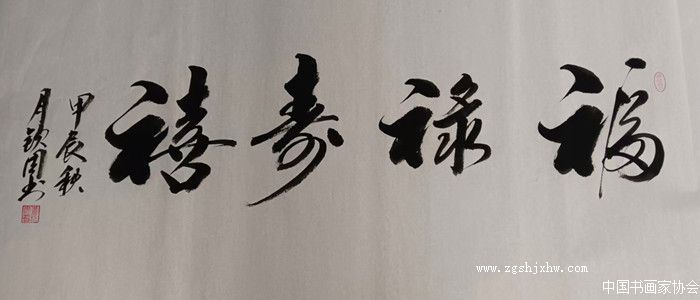 福禄寿禧
甲辰秋
月钦周书
www.zgshjxhw.com
中国书画家协会